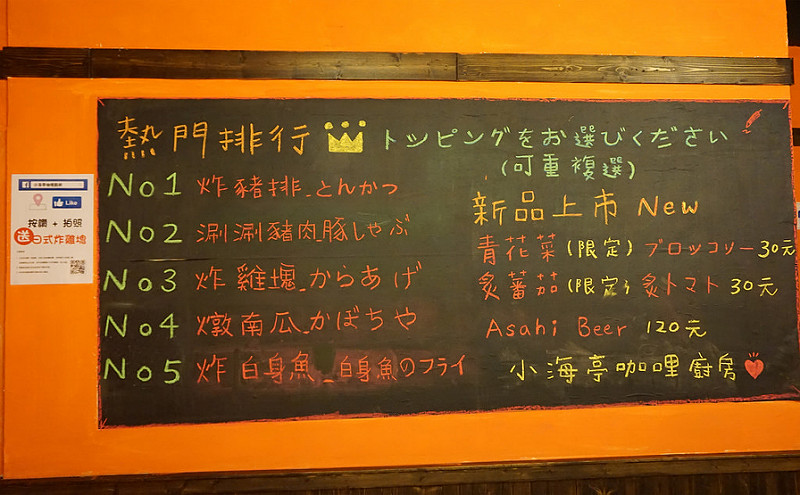 熱門排行
トッピングをお選びください
(可重複選)
No1 炸豬排_とんかつ
No2 涮涮豬肉_豚しゃぶ
No3 炸雞塊_からあげ
No4 燉南瓜_かぼちや
No5 炸白身魚_白身魚のフライ
新品上市 New
青花菜(限定)ブロッコリー30元
炙蕃茄(限定)炙トマト 30元
Asahi Beer 120元
小海亭咖哩廚房
Like
按讚 + 拍照
送日式炸雞塊